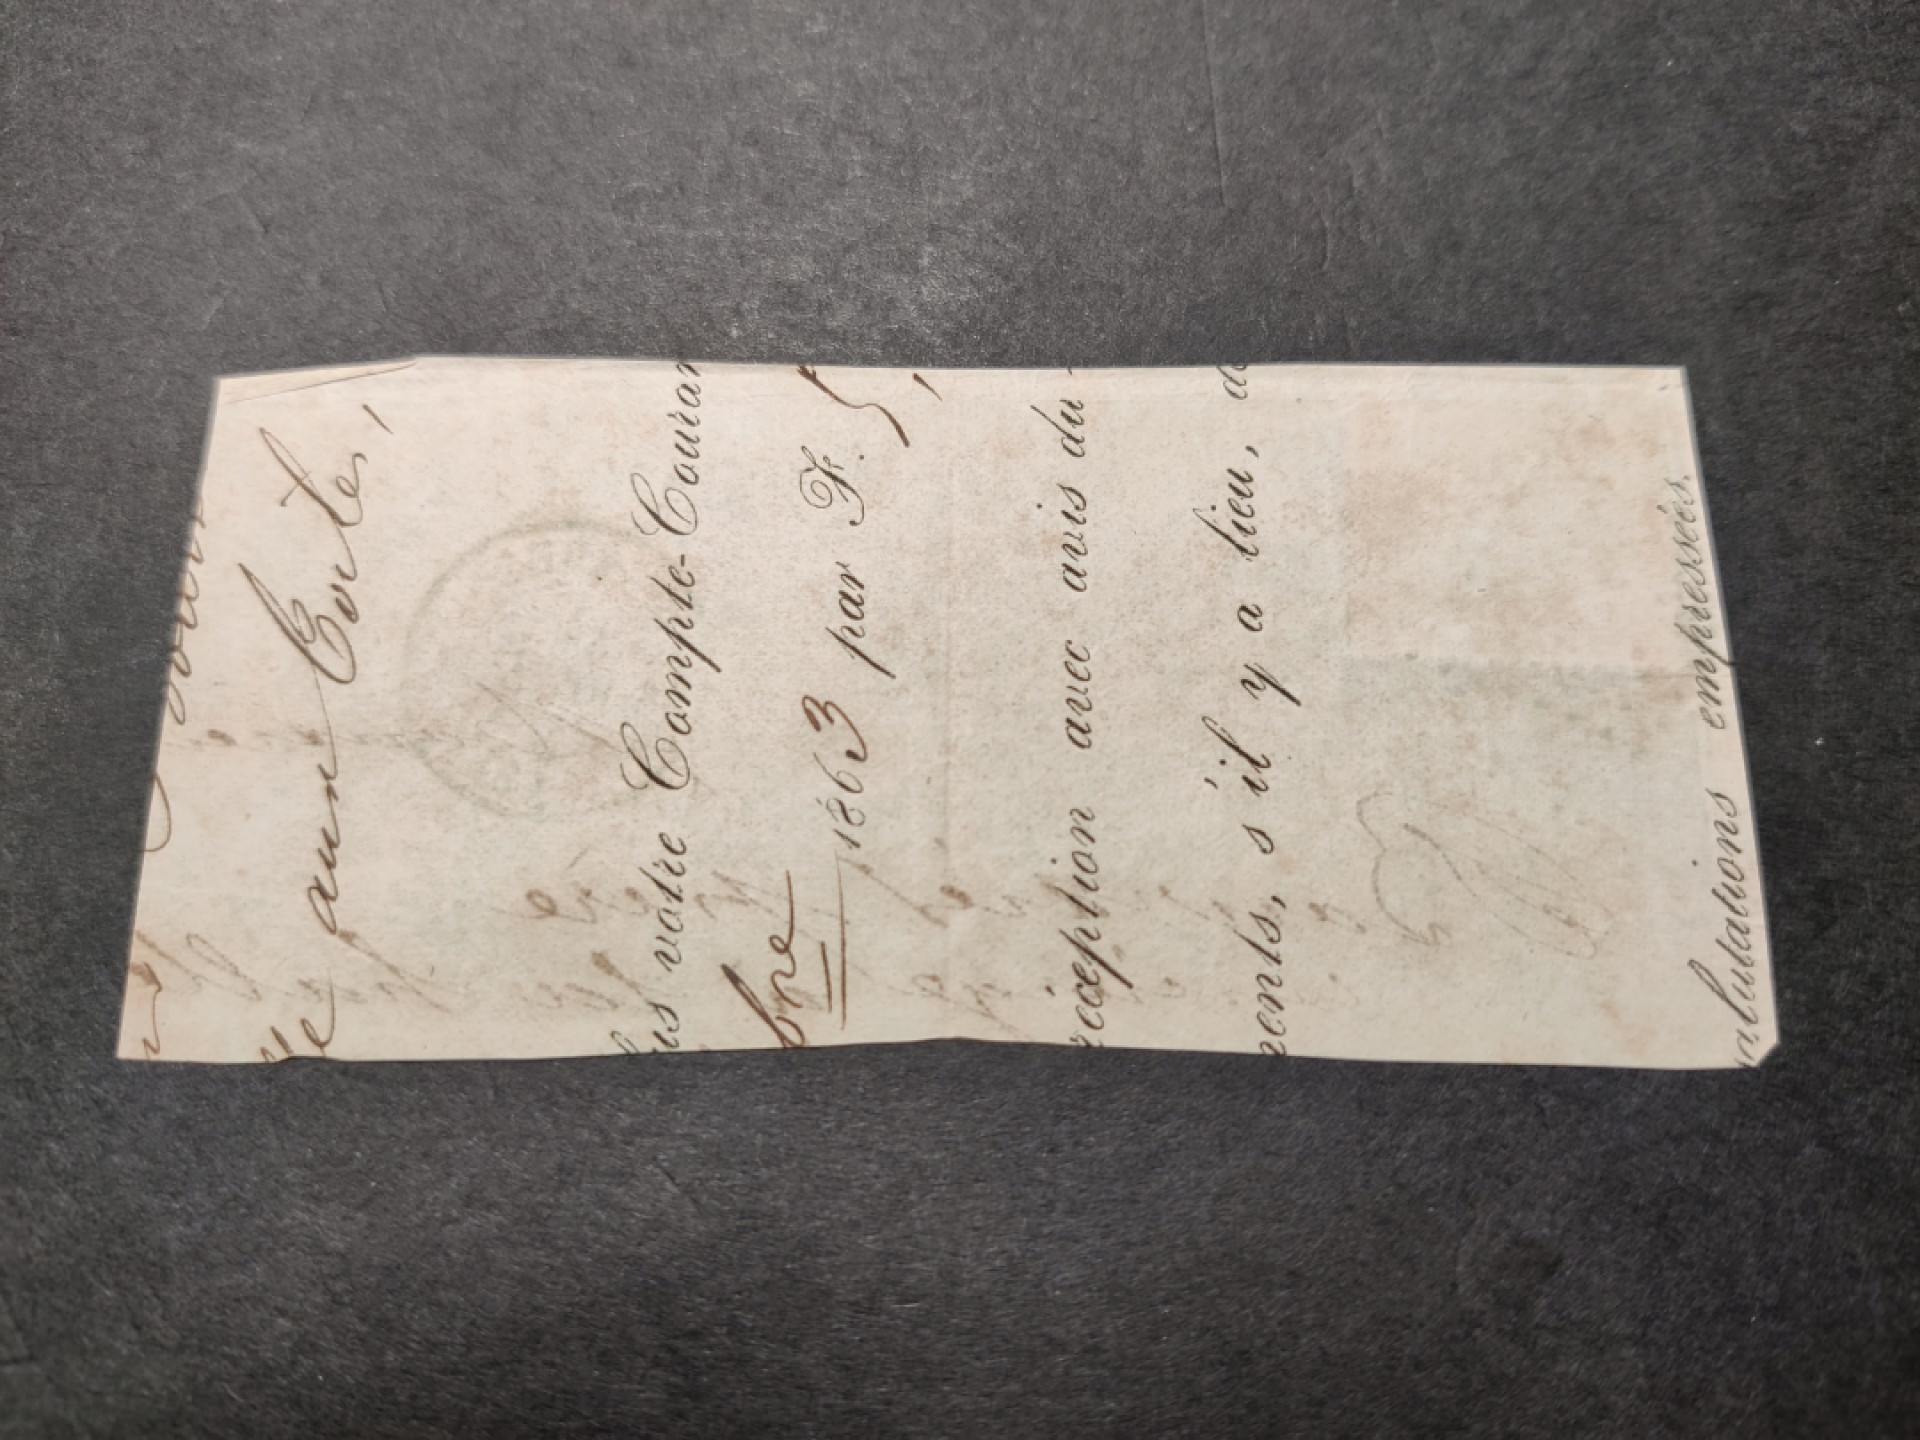 aun Corte,
us votre Compte-Couran
bre 1863 par F. 5,
réception avec avis du
ents, s'il y a lieu, d
alutations empressées.